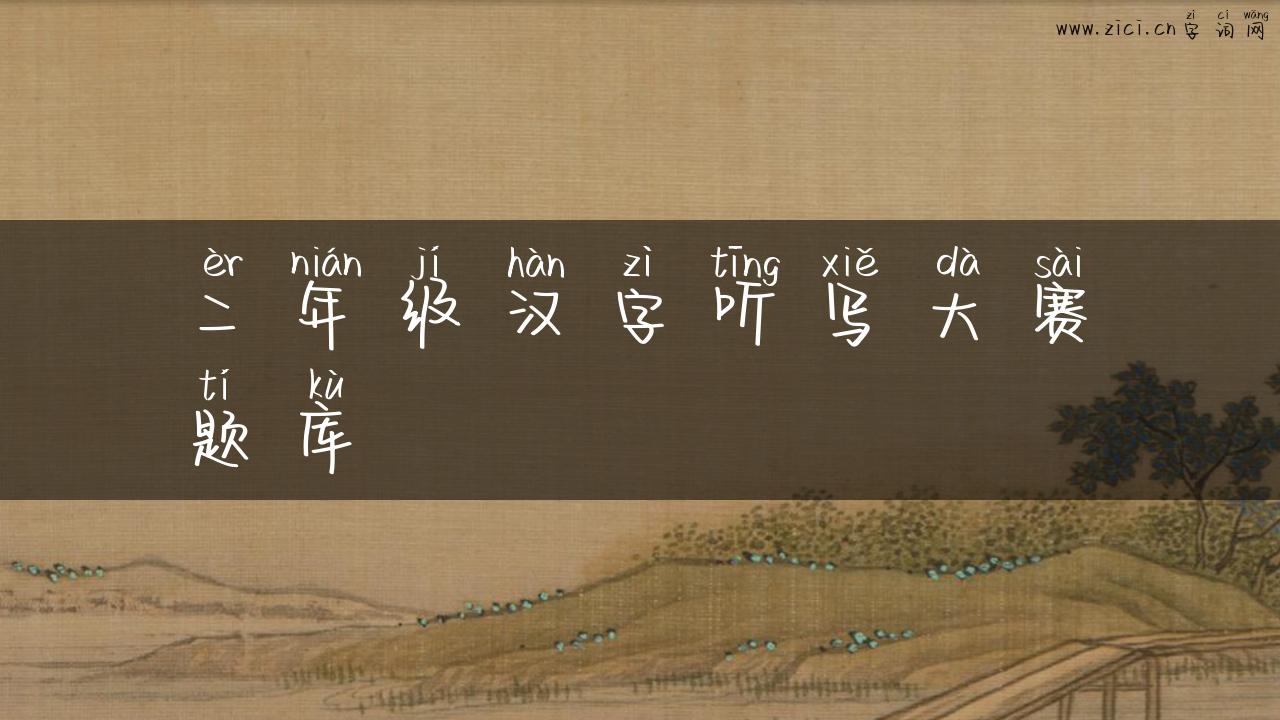 zì cí wǎng
www.zici.cn字词网
èr nián jí hàn zì tīng xiě dà sài
二年级汉字听写大赛
tí kù
题库